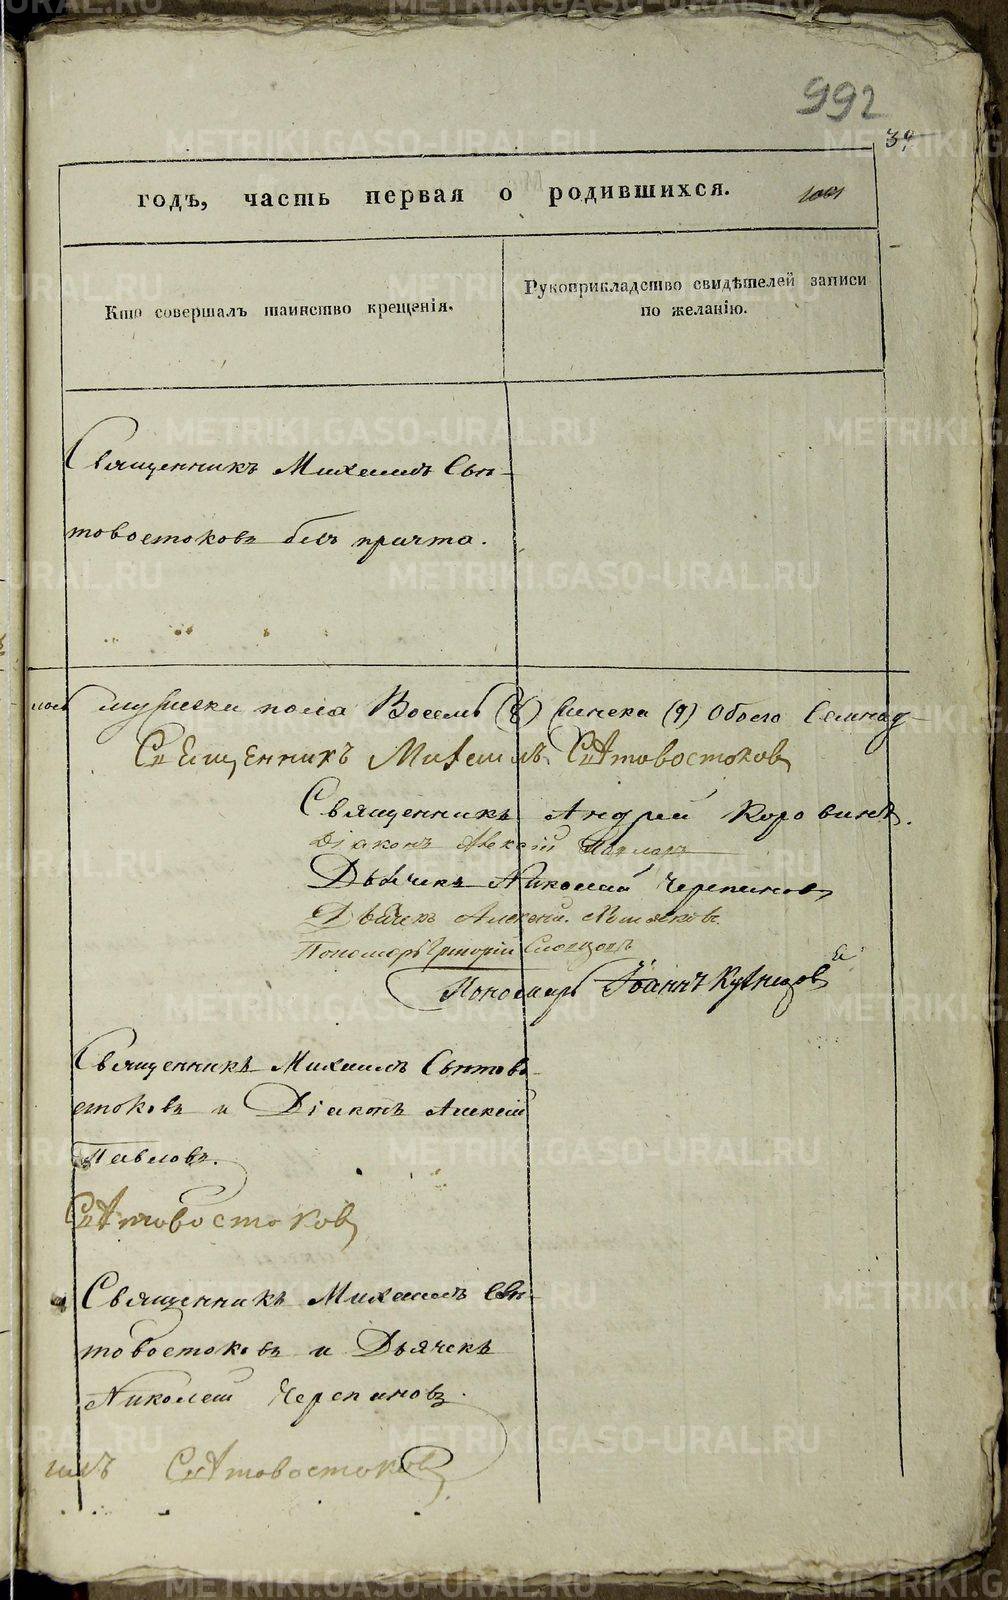 992
39
годъ, часть первая о родившихся.
Кто совершалъ таинство крещенія.
Рукоприкладство свидѣтелей записи
по желанію.
Священникъ Михаилъ Свѣ-
товостоковъ безъ причта.
мужеска пола Восемь (8) женска (9) Обоего Семнад-
Священникъ Михаилъ Святовостоковъ
Священникъ Андрей Коровинъ.
Діаконъ Алексій
Дьячекъ Николай Черепановъ
Дьячекъ Алексѣй
Пономарь Григорій
Пономарь Іоаннъ Кузнецовъ
Священникъ Михаилъ Свѣтово-
стоковъ и Діаконъ Алексій
Павловъ.
Святовостоковъ
Священникъ Михаилъ Свѣ-
товостоковъ и Дьячекъ
Николай Черепановъ.
Святовостоковъ
METRIKI.GASO-URAL.RU